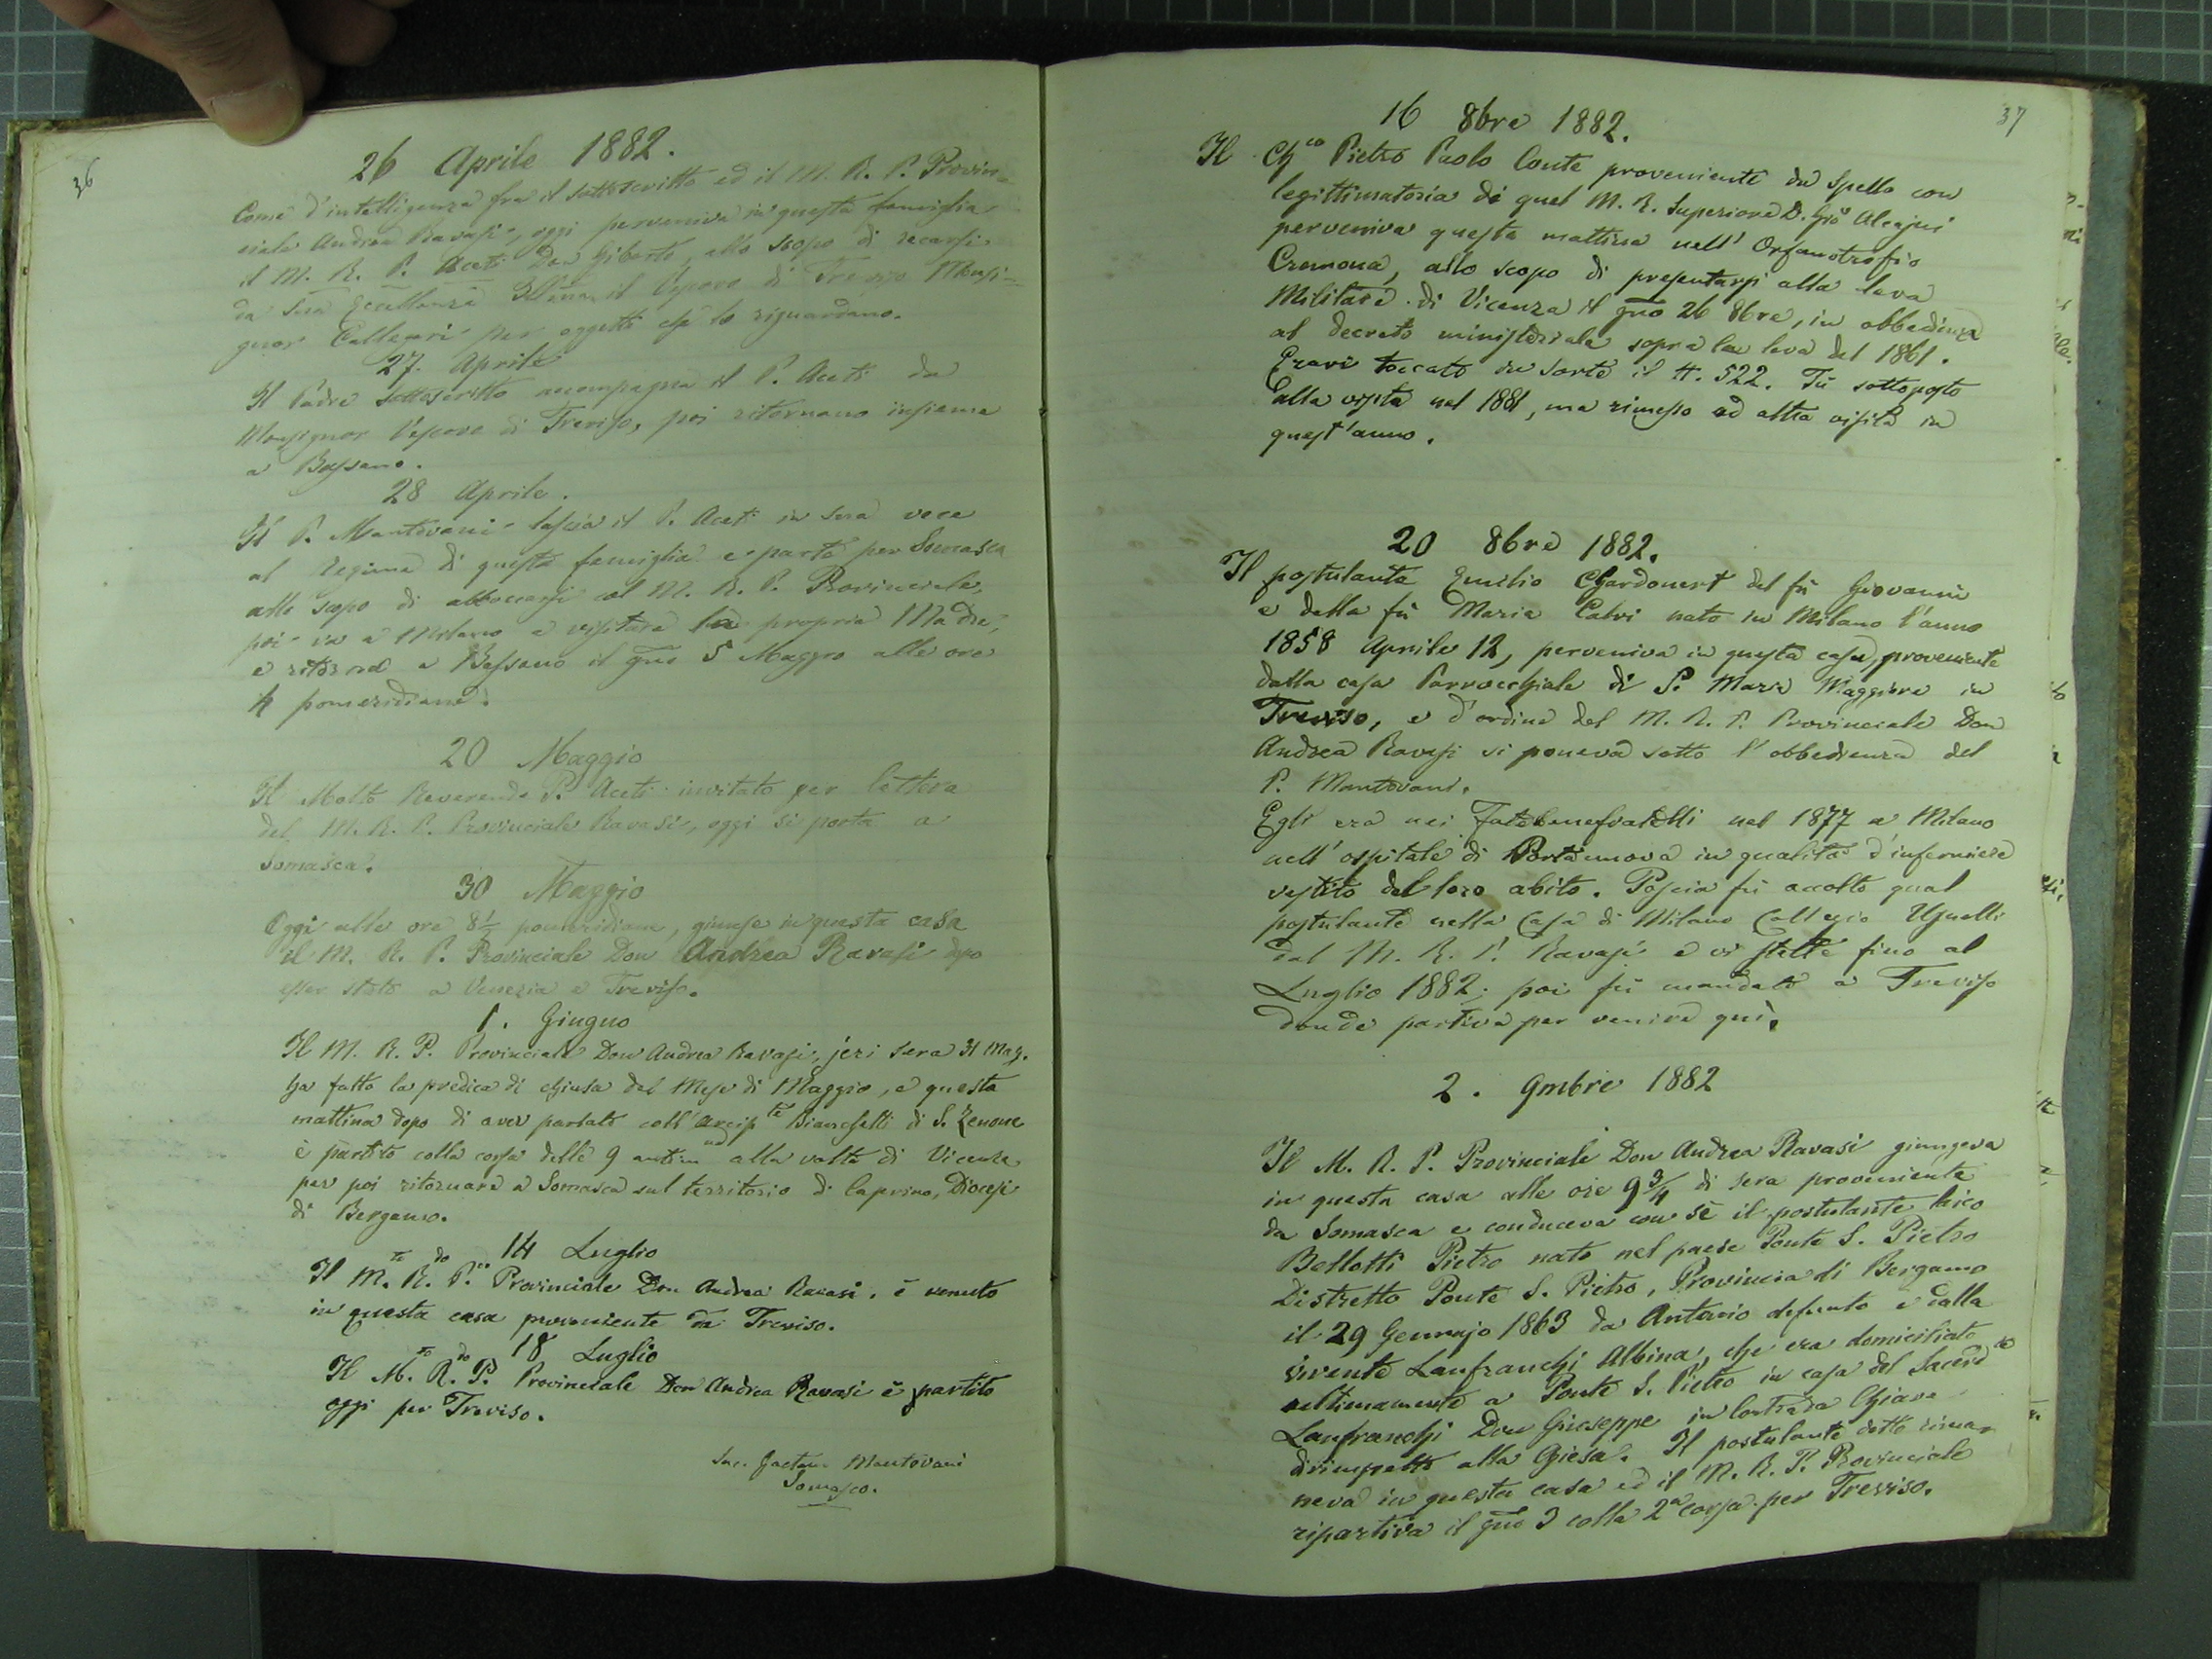 36
26 Aprile 1882.
Come d'intelligenza fra il sottoscritto ed il M. R. P. Provin=
ciale Andrea Ravasi, oggi perveniva in questa famiglia
il M. R. P. Aceti Don Giberto, allo scopo di recarsi
da Sua Eccellenza Ill.ma il Vescovo di Treviso Monsi=
gnor Callegari per oggetti che lo riguardano.
27. Aprile
Il Padre sottoscritto accompagna il P. Aceti da
Monsignor Vescovo di Treviso, poi ritornano insieme
a Bassano.
28 Aprile.
Il P. Mantovani lascia il P. Aceti in sua vece
al Regime di questa famiglia e parte per Somasca
allo scopo di abboccarsi col M. R. P. Provinciale,
poi va a Milano a visitare la propria Madre,
e ritorna a Bassano il gno 5 Maggio alle ore
4 pomeridiane.
20 Maggio
Il Molto Reverendo P. Aceti invitato per lettera
del M. R. P. Provinciale Ravasi, oggi si porta a
Somasca.
30 Maggio
Oggi alle ore 8 1/2 pomeridiane, giunse in questa casa
il M. R. P. Provinciale Don Andrea Ravasi dopo
esser stato a Venezia e Treviso.
1. Giugno
Il M. R. P. Provinciale Don Andrea Ravasi, jeri sera 31 Mag.
ha fatto la predica di chiusa del Mese di Maggio, e questa
mattina dopo di aver parlato coll'Arcip.te Bianchetti di S. Zenone
è partito colla corsa delle 9 antim. alla volta di Vicenza
per poi ritornare a Somasca sul territorio di Caprino, Diocesi
di Bergamo.
14 Luglio
Il M.to R.do P. Provinciale Don Andrea Ravasi, è venuto
in questa casa proveniente da Treviso.
18 Luglio
Il M.to R.do P. Provinciale Don Andrea Ravasi è partito
oggi per Treviso.
Sac. Gaetano Mantovani
Somasco.
37
16 8bre 1882.
Il Ch.co Pietro Paolo Conte proveniente da Spello con
legittimatoria di quel M. R. Superiore D. Gio
perveniva questa mattina nell'Orfanotrofio
Cremona, allo scopo di presentarsi alla leva
Militare di Vicenza il gno 26 8bre, in obbedienza
al decreto ministeriale sopra la leva del 1861.
Eravi toccato in sorte il N. 522. Fu sottoposto
alla visita nel 1881, ma rimesso ad altra visita in
quest'anno.
20 8bre 1882.
Il postulante Emilio Chardonest del fù Giovanni
e della fù Maria Calvi nato in Milano l'anno
1858 Aprile 12, perveniva in questa casa, proveniente
dalla casa Parrocchiale di S. Maria Maggiore in
Treviso, e d'ordine del M. R. P. Provinciale Don
Andrea Ravasi si poneva sotto l'obbedienza del
P. Mantovani.
Egli era nei Fatebenefratelli nel 1877 a Milano
nell'ospitale di Porta nuova in qualità d'infermiere
vestito del loro abito. Poscia fù accolto qual
postulante nella Casa di Milano Collegio Usuelli
dal M. R. P. Ravasi e vi stette fino al
Luglio 1882; poi fù mandato a Treviso
donde partiva per venire quì.
2. 9mbre 1882
Il M. R. P. Provinciale Don Andrea Ravasi giungeva
in questa casa alle ore 9 3/4 di sera proveniente
da Somasca e conduceva con sè il postulante laico
Bellotti Pietro nato nel paese Ponte S. Pietro
Distretto Ponte S. Pietro, Provincia di Bergamo
il 29 Gennajo 1863 da Antonio defunto e dalla
vivente Lanfranchi Albina, che era domiciliato
ultimamente a Ponte S. Pietro in casa del Sacerd.te
Lanfranchi Don Giuseppe in Contrada Chiave
dirimpetto alla Chiesa. Il postulante detto rima=
neva in questa casa ed il M. R. P. Provinciale
ripartiva il gno 3 colla 2a corsa per Treviso.